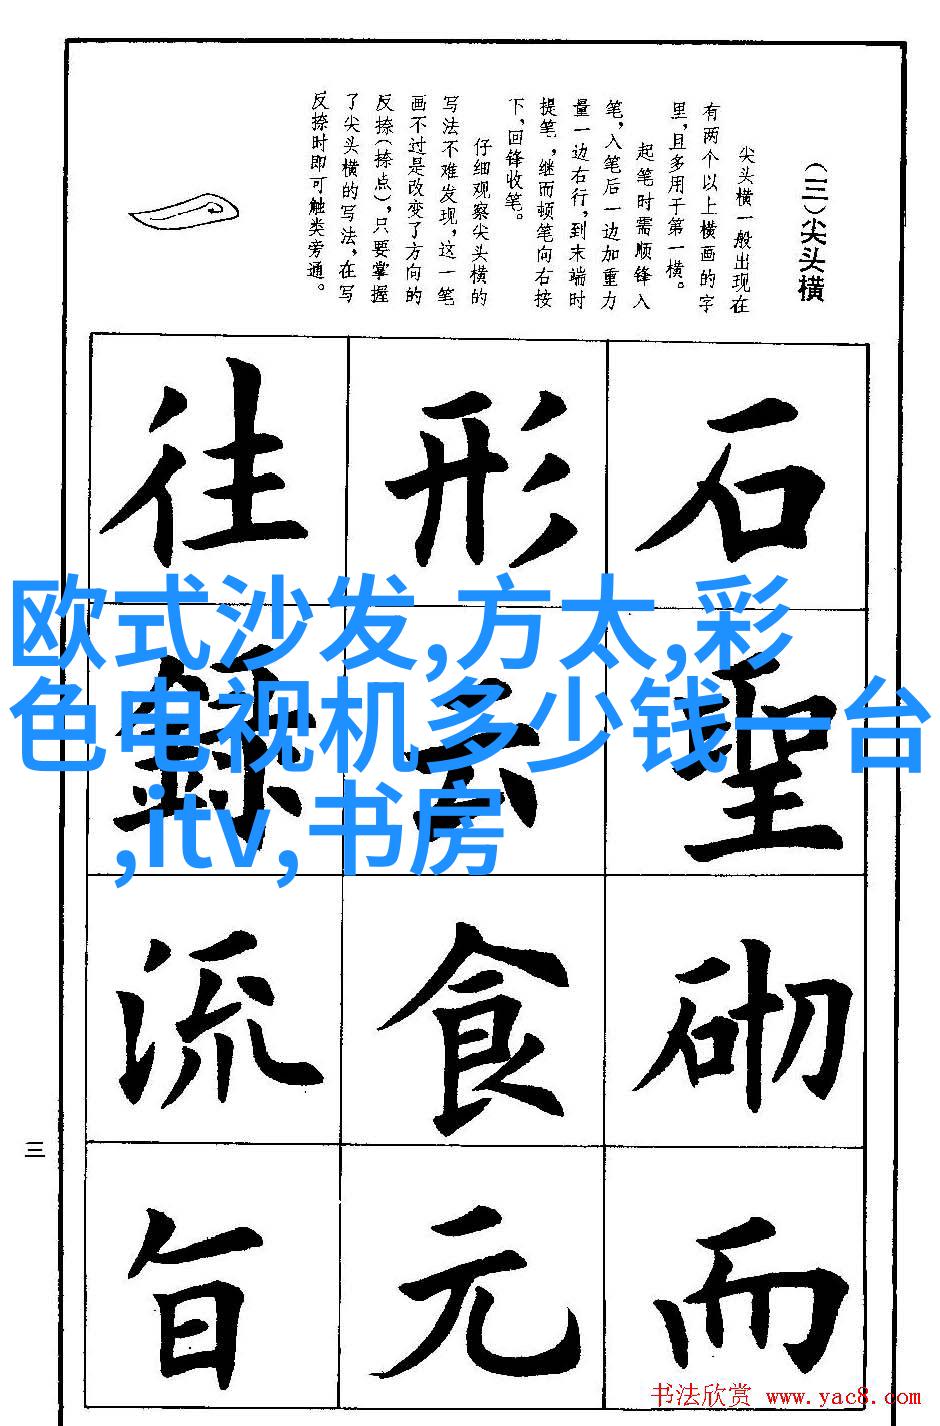 （三）尖头横
尖头横一般出现在
有两个以上横画的字
里，且多用于第一横。
起笔时需顺锋入
笔，入笔后一边加重力
量一边右行，到末端时
提笔，继而顿笔向右按
下，回锋收笔。
仔细观察尖头横的
写法不难发现，这一笔
画不过是改变了方向的
反捺（捺点），只要掌握
了尖头横的写法，在写
反捺时即可触类旁通。
石
聖
砌
而
形
玄
食
元
往
録
流
旨
欧式沙发,方太,彩
色电视机多少钱一台
,itv,书房
三
书法欣赏 www.yac8.com